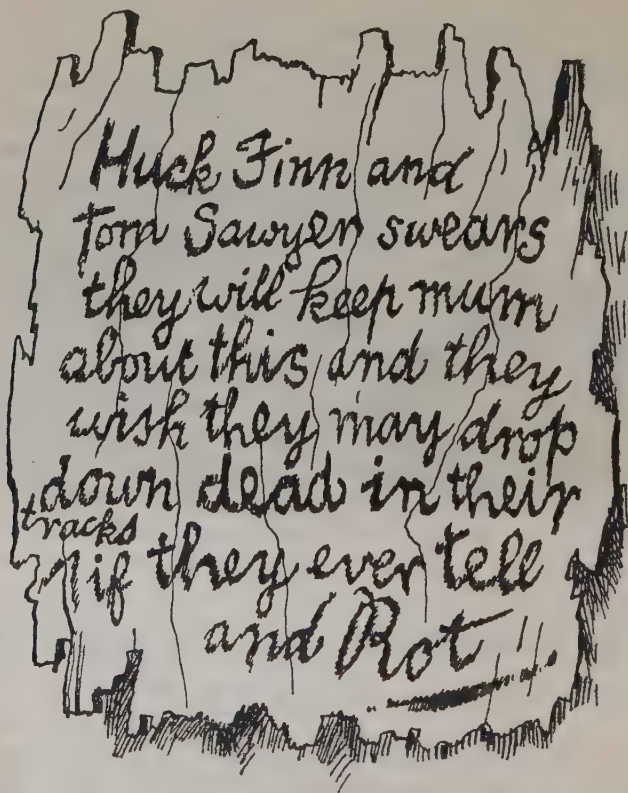 Huck Finn and
Tom Sawyer swears
they will keep mum
about this and they
wish they may drop
down dead in their
tracks
if they ever tell
and Rot